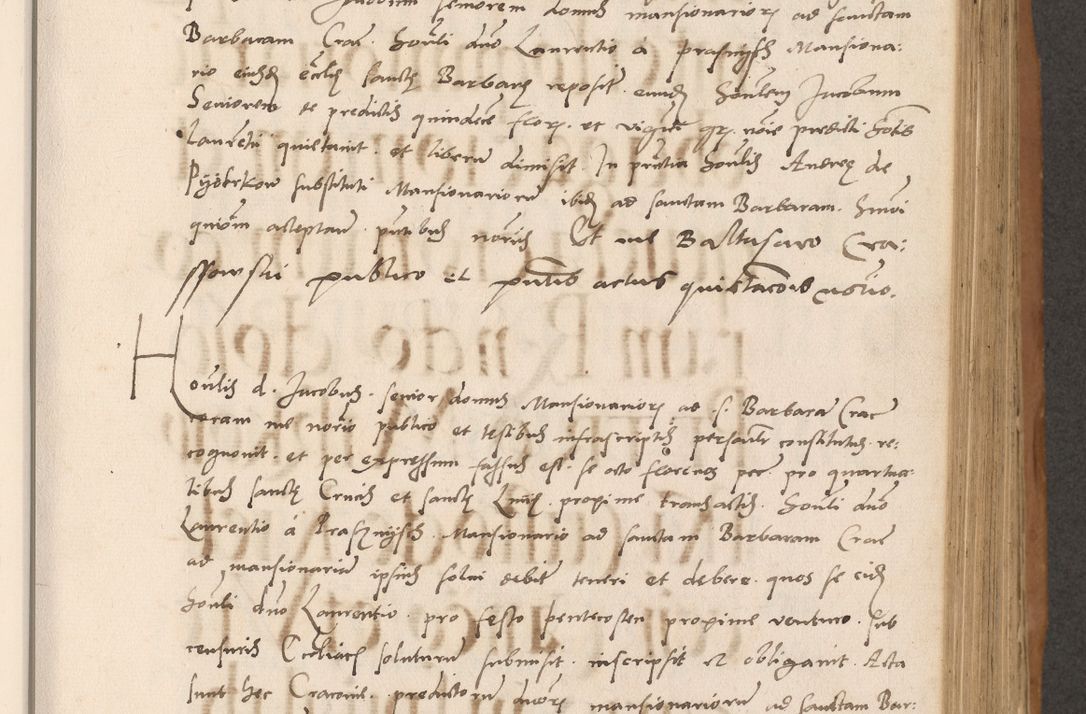 Jacobum seniorem domus mansionarior ad sanctam
Barbaram Crac. Honli dno Laurentio a prasnysch Mansiona:
rio eiusd eccliae sancte Barbare reposit eund Honlem Jacobum
Seniorem de predictis quindecem flor. et viginti gr. noie predicti Honlis
Laurentii quietavit et liberum dimisit. In prntia Honlis Andree de
Pyotrkow substituti Mansionariorum ibid ad sanctam Barbaram.
quiom acceptam prntibus notrius Et me Baltasaro Cra:
ssowski publico et prntis actus quietacois notrio.
Honlis d. Jacobus senior domus Mansionarior ad S. Barbara Crac
coram me notrio publico et testibus infrascriptis personalr constitutus re:
cognovit et per expressum fassus est se octo florenos pec. pro quartua:
libus sancte Crucis et sancte Lucie proxime transactis Honli dno
Laurentio a Prasznysch Mansionario ad sanctam Barbaram Crac
ad mansionariam ipsius solvi debit teneri et debere quos se eid
Honli dno Laurentio pro festo penthecosten proxime venturo sub
censuris Eccliacis soluturum submisit inscripsit et obligavit. Acta
sunt hec Cracovie predictorum duor mansionariorum ad sanctam Bar: